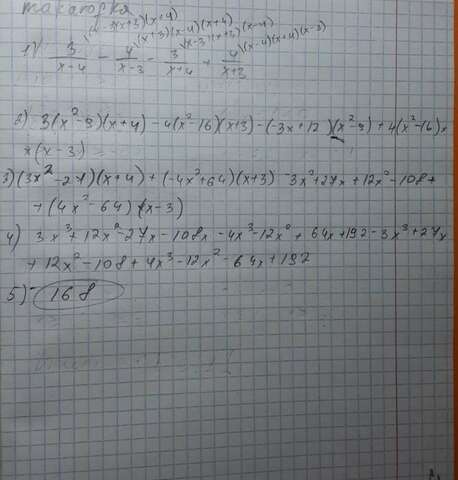 (x-3)(x+3)(x+4) \(x+3)(x-4)(x+4) \(x-3)(x+3)(x-4) \(x-4)(x+4)(x-3)
1) 3/(x-4) - 4/(x-3) - 3/(x+4) + 4/(x+3)
2) 3(x²-9)(x+4) - 4(x²-16)(x+3) - (3x+12)(x²-9) + 4(x²-16)×
×(x-3) =
3) (3x²-27)(x+4) + (-4x²+64)(x+3) - 3x³+27x+12x²-108+
+ (4x²-64)(x-3)
4) 3x³+12x²-27x-108x-4x³-12x²+64x+192-3x³+27x
+12x²-108+4x³-12x²-64x+192
5) 168